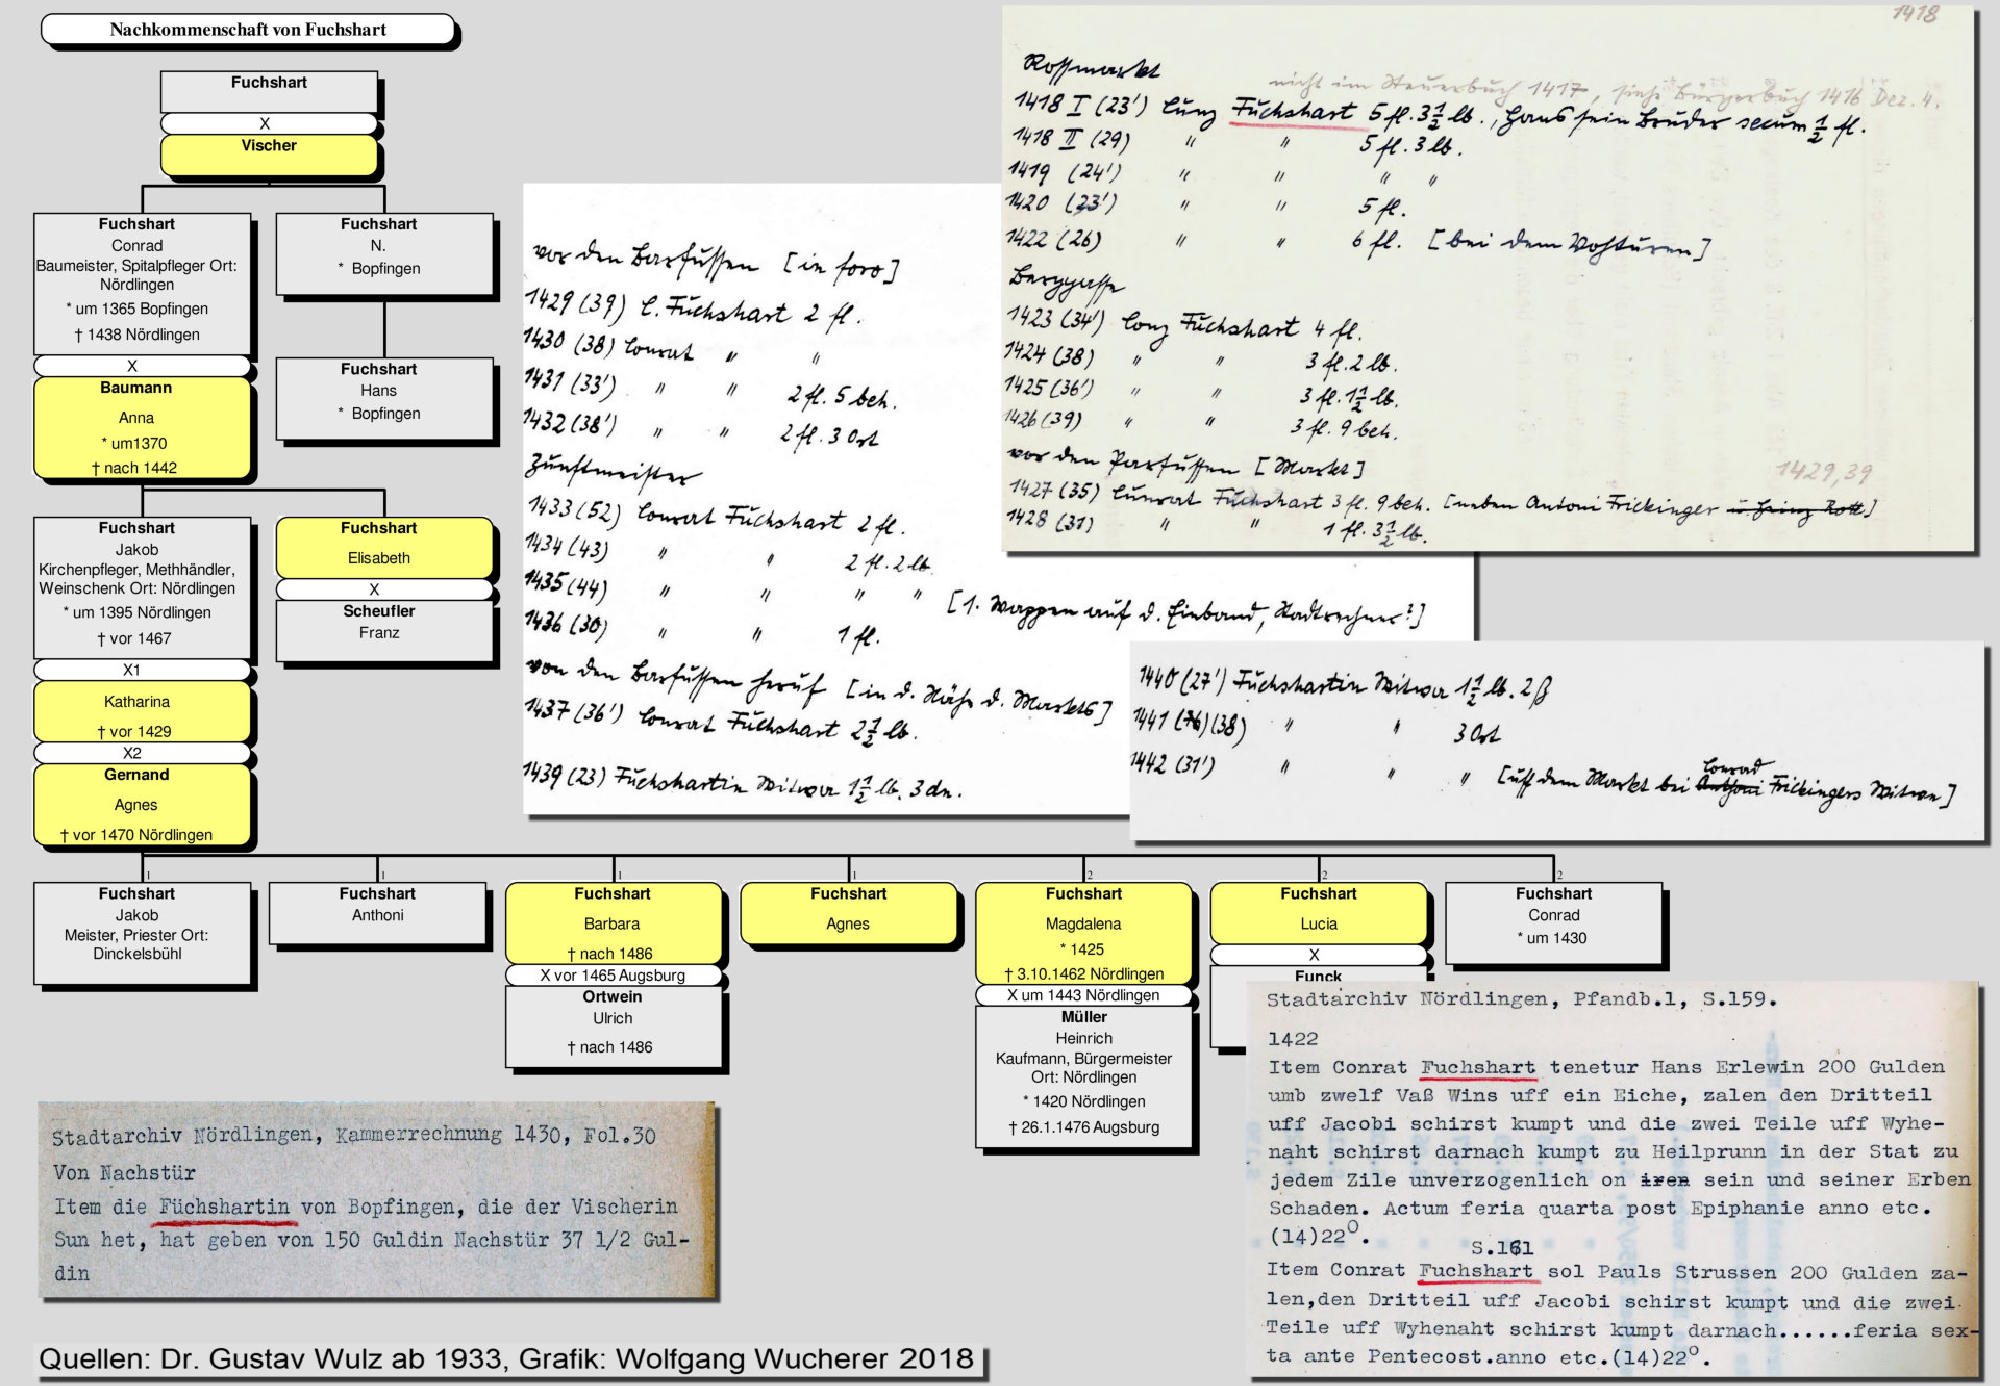 Nachkommenschaft von Fuchshart
Fuchshart
X
Vischer
Fuchshart
Conrad
Baumeister, Spitalpfleger Ort:
Nördlingen
* um 1365 Bopfingen
† 1438 Nördlingen
X
Baumann
Anna
* um1370
† nach 1442
Fuchshart
N.
* Bopfingen
Fuchshart
Hans
* Bopfingen
Fuchshart
Jakob
Kirchenpfleger, Methhändler,
Weinschenk Ort: Nördlingen
* um 1395 Nördlingen
† vor 1467
X1
Katharina
† vor 1429
X2
Gernand
Agnes
† vor 1470 Nördlingen
Fuchshart
Elisabeth
X
Scheufler
Franz
1
Fuchshart
Jakob
Meister, Priester Ort:
Dinckelsbühl
1
Fuchshart
Anthoni
1
Fuchshart
Barbara
† nach 1486
X vor 1465 Augsburg
Ortwein
Ulrich
† nach 1486
1
Fuchshart
Agnes
2
Fuchshart
Magdalena
* 1425
† 3.10.1462 Nördlingen
X um 1443 Nördlingen
Müller
Heinrich
Kaufmann, Bürgermeister
Ort: Nördlingen
* 1420 Nördlingen
† 26.1.1476 Augsburg
2
Fuchshart
Lucia
X
Funck
2
Fuchshart
Conrad
* um 1430
1418
Rossmarkt
nicht im Steuerbuch 1417, siehe Bürgerbuch 1416 Dez. 4.
1418 I (23') Cunz Fuchshart 5 fl. 3 1/2 lb., Hans sein Bruder secum 1/2 fl.
1418 II (29) " " 5 fl. 3 lb.
1419 (24') " " " "
1420 (23') " " 5 fl.
1422 (26) " " 6 fl. [bei dem Vohturen]
Berggasse
1423 (34') Conz Fuchshart 4 fl.
1424 (38) " " 3 fl. 2 lb.
1425 (36') " " 3 fl. 1 1/2 lb.
1426 (39) " " 3 fl. 9 beh.
vor den Parfussen [Markt]
1429,39
1427 (35) Cunrat Fuchshart 3 fl. 9 beh. [neben Antoni Frickinger u. Heinz Rott]
1428 (31) " " 1 fl. 3 1/2 lb.
vor den Barfussen [in foro]
1429 (39) C. Fuchshart 2 fl.
1430 (38) Conrat " "
1431 (33') " " 2 fl. 5 beh.
1432 (38') " " 2 fl. 3 Ort
Zunftmeister
1433 (52) Conrat Fuchshart 2 fl.
1434 (43) " " 2 fl. 2 lb.
1435 (44) " " " " [1. Wappen auf d. Einband, Stadtrechner?]
1436 (30) " " 1 fl.
von den Barfussen heruf [in d. Nähe d. Markts]
1437 (36') Conrat Fuchshart 2 1/2 lb.
1439 (23) Fuchshartin Witwa 1 1/2 lb. 3 dn.
1440 (27') Fuchshartin Witwa 1 1/2 lb. 2 ß
1441 (38) " " 3 Ort
1442 (31') " " " [uff dem Markt bei Conrad Anthoni Frickingers Witwen]
Stadtarchiv Nördlingen, Kammerrechnung 1430, Fol.30
Von Nachstür
Item die Füchshartin von Bopfingen, die der Vischerin
Sun het, hat geben von 150 Guldin Nachstür 37 1/2 Gul-
din
Stadtarchiv Nördlingen, Pfandb.1, S.159.
1422
Item Conrat Fuchshart tenetur Hans Erlewin 200 Gulden
umb zwelf Vaß Wins uff ein Eiche, zalen den Dritteil
uff Jacobi schirst kumpt und die zwei Teile uff Wyhe-
naht schirst darnach kumpt zu Heilprunn in der Stat zu
jedem Zile unverzogenlich on iren sein und seiner Erben
Schaden. Actum feria quarta post Epiphanie anno etc.
(14)22o.
S.161
Item Conrat Fuchshart sol Pauls Strussen 200 Gulden za-
len,den Dritteil uff Jacobi schirst kumpt und die zwei
Teile uff Wyhenaht schirst kumpt darnach......feria sex-
ta ante Pentecost.anno etc.(14)22o.
Quellen: Dr. Gustav Wulz ab 1933, Grafik: Wolfgang Wucherer 2018